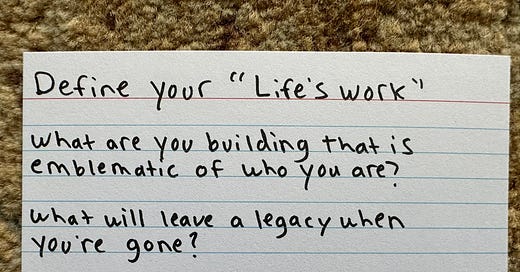 Define your "Life's work"
what are you building that is
emblematic of who you are?
what will leave a legacy when
you're gone?